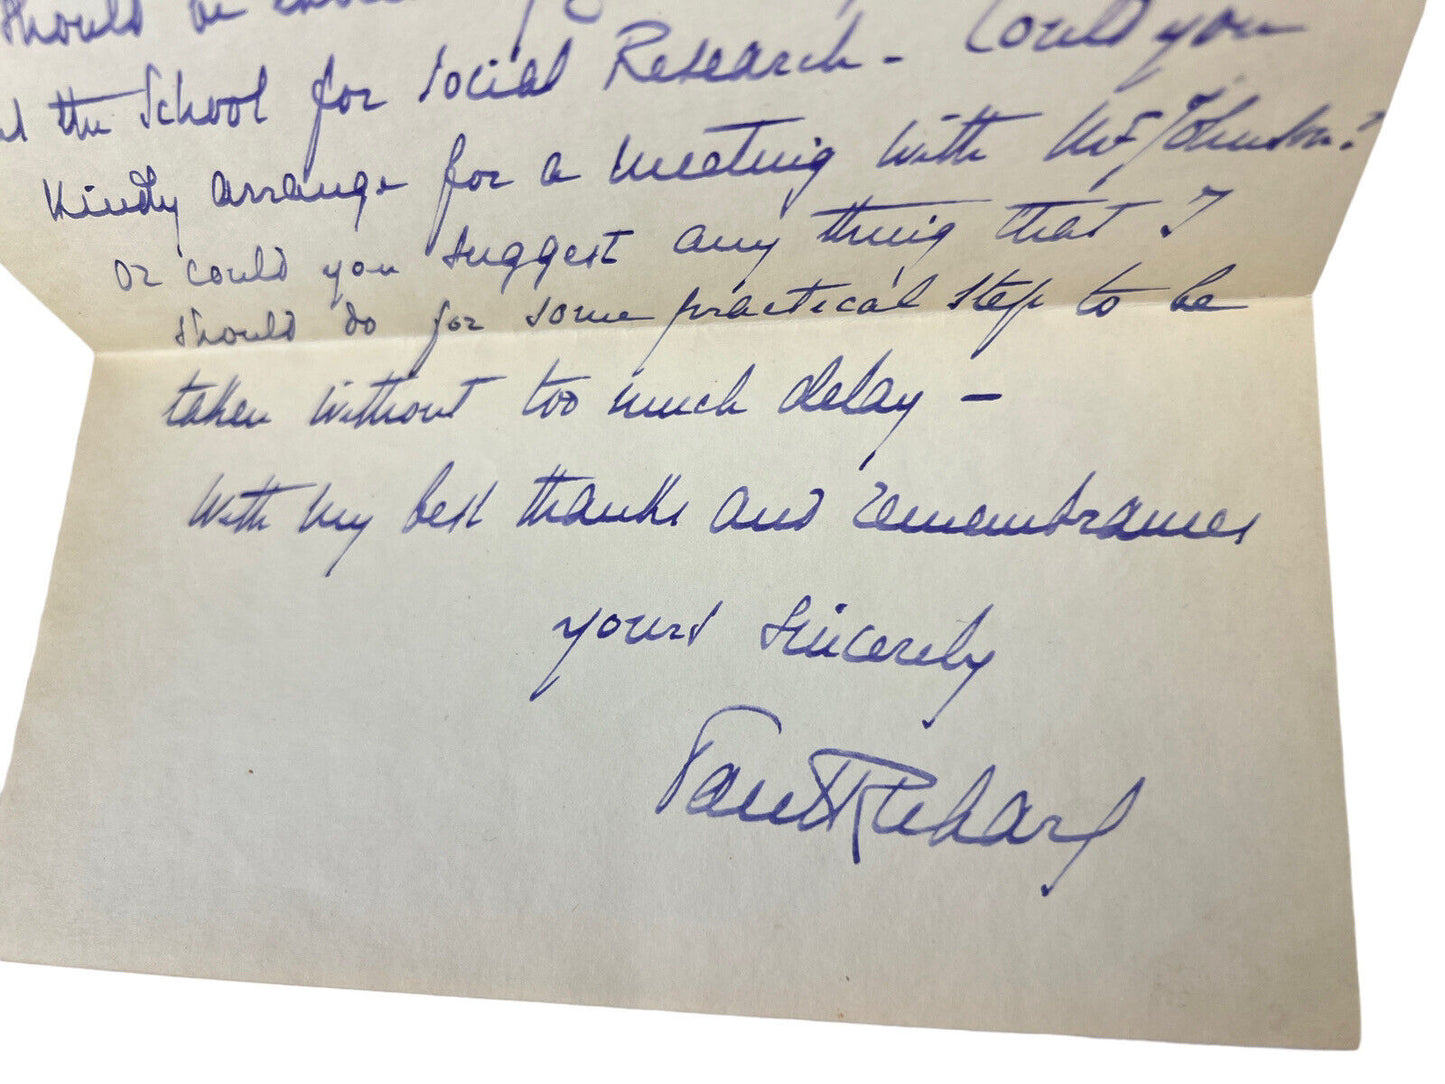 should be
the School for Social Research - Could you
Kindly arrange for a meeting with Mr Johnson?
or could you suggest any thing that I
should do for some practical step to be
taken without too much delay -
With my best thanks and remembrances
yours sincerely
Paul Richard